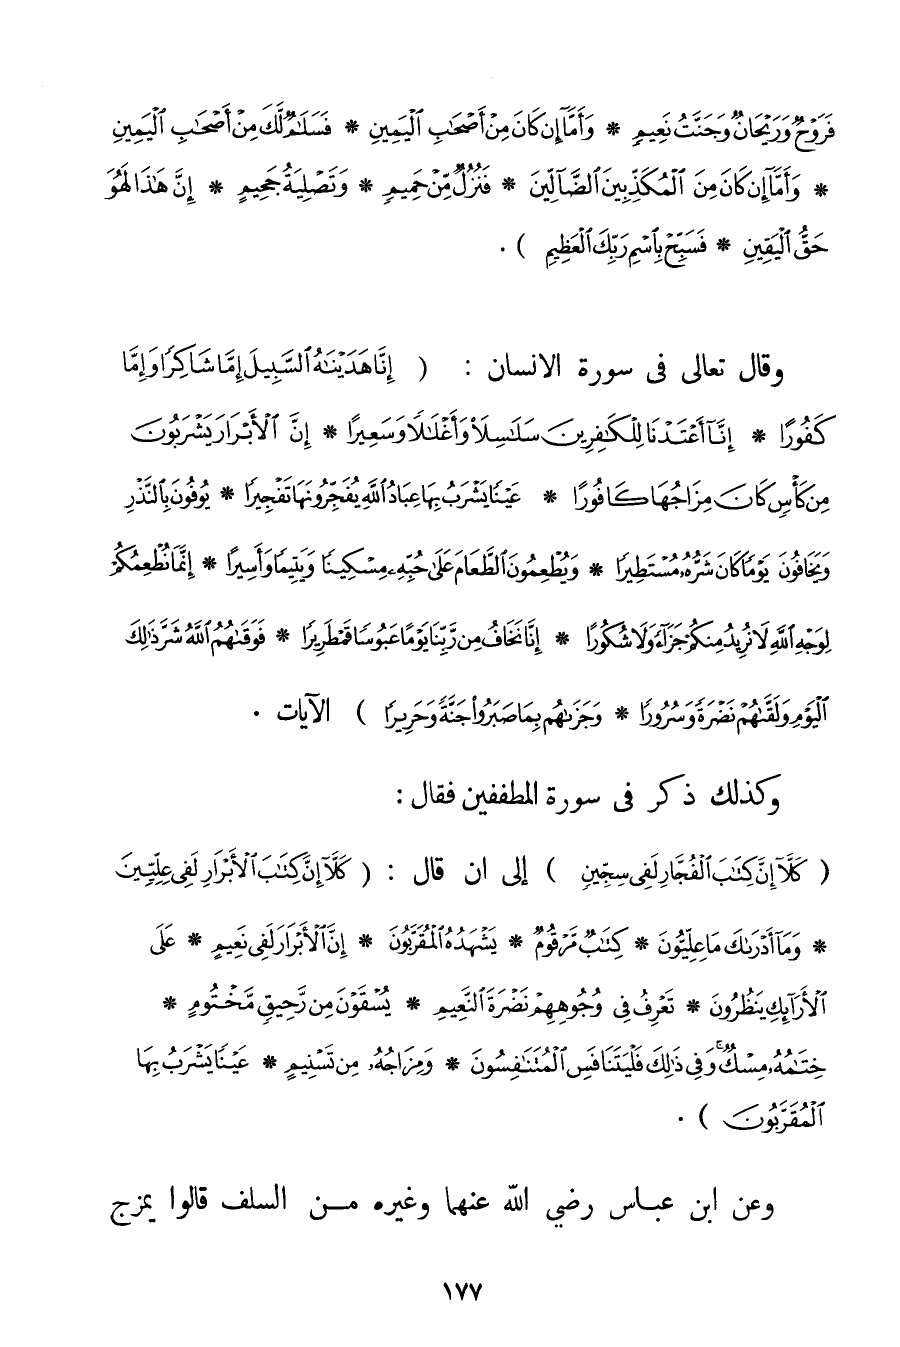 فَرَوْحٌ وَرَيْحَانٌ وَجَنَّتُ نَعِيمٍ * وَأَمَّآ إِن كَانَ مِنْ أَصْحَٰبِ ٱلْيَمِينِ * فَسَلَٰمٌ لَّكَ مِنْ أَصْحَٰبِ ٱلْيَمِينِ
* وَأَمَّآ إِن كَانَ مِنَ ٱلْمُكَذِّبِينَ ٱلضَّآلِّينَ * فَنُزُلٌ مِّنْ حَمِيمٍ * وَتَصْلِيَةُ جَحِيمٍ * إِنَّ هَٰذَا لَهُوَ
حَقُّ ٱلْيَقِينِ * فَسَبِّحْ بِٱسْمِ رَبِّكَ ٱلْعَظِيمِ ) .
وقال تعالى فى سورة الانسان : ( إِنَّا هَدَيْنَٰهُ ٱلسَّبِيلَ إِمَّا شَاكِرًا وَإِمَّا
كَفُورًا * إِنَّآ أَعْتَدْنَا لِلْكَٰفِرِينَ سَلَٰسِلَا۟ وَأَغْلَٰلًا وَسَعِيرًا * إِنَّ ٱلْأَبْرَارَ يَشْرَبُونَ
مِن كَأْسٍ كَانَ مِزَاجُهَا كَافُورًا * عَيْنًا يَشْرَبُ بِهَا عِبَادُ ٱللَّهِ يُفَجِّرُونَهَا تَفْجِيرًا * يُوفُونَ بِٱلنَّذْرِ
وَيَخَافُونَ يَوْمًا كَانَ شَرُّهُۥ مُسْتَطِيرًا * وَيُطْعِمُونَ ٱلطَّعَامَ عَلَىٰ حُبِّهِۦ مِسْكِينًا وَيَتِيمًا وَأَسِيرًا * إِنَّمَا نُطْعِمُكُمْ
لِوَجْهِ ٱللَّهِ لَا نُرِيدُ مِنكُمْ جَزَآءً وَلَا شُكُورًا * إِنَّا نَخَافُ مِن رَّبِّنَا يَوْمًا عَبُوسًا قَمْطَرِيرًا * فَوَقَىٰهُمُ ٱللَّهُ شَرَّ ذَٰلِكَ
ٱلْيَوْمِ وَلَقَّىٰهُمْ نَضْرَةً وَسُرُورًا * وَجَزَىٰهُم بِمَا صَبَرُوا۟ جَنَّةً وَحَرِيرًا ) الآيات .
وكذلك ذكر فى سورة المطففين فقال :
( كَلَّآ إِنَّ كِتَٰبَ ٱلْفُجَّارِ لَفِى سِجِّينٍ ) إلى ان قال : ( كَلَّآ إِنَّ كِتَٰبَ ٱلْأَبْرَارِ لَفِى عِلِّيِّينَ
* وَمَآ أَدْرَىٰكَ مَا عِلِّيُّونَ * كِتَٰبٌ مَّرْقُومٌ * يَشْهَدُهُ ٱلْمُقَرَّبُونَ * إِنَّ ٱلْأَبْرَارَ لَفِى نَعِيمٍ * عَلَى
ٱلْأَرَآئِكِ يَنظُرُونَ * تَعْرِفُ فِى وُجُوهِهِمْ نَضْرَةَ ٱلنَّعِيمِ * يُسْقَوْنَ مِن رَّحِيقٍ مَّخْتُومٍ *
خِتَٰمُهُۥ مِسْكٌ ۚ وَفِى ذَٰلِكَ فَلْيَتَنَافَسِ ٱلْمُتَنَٰفِسُونَ * وَمِزَاجُهُۥ مِن تَسْنِيمٍ * عَيْنًا يَشْرَبُ بِهَا
ٱلْمُقَرَّبُونَ ) .
وعن ابن عباس رضي الله عنهما وغيره من السلف قالوا يمزج
١٧٧